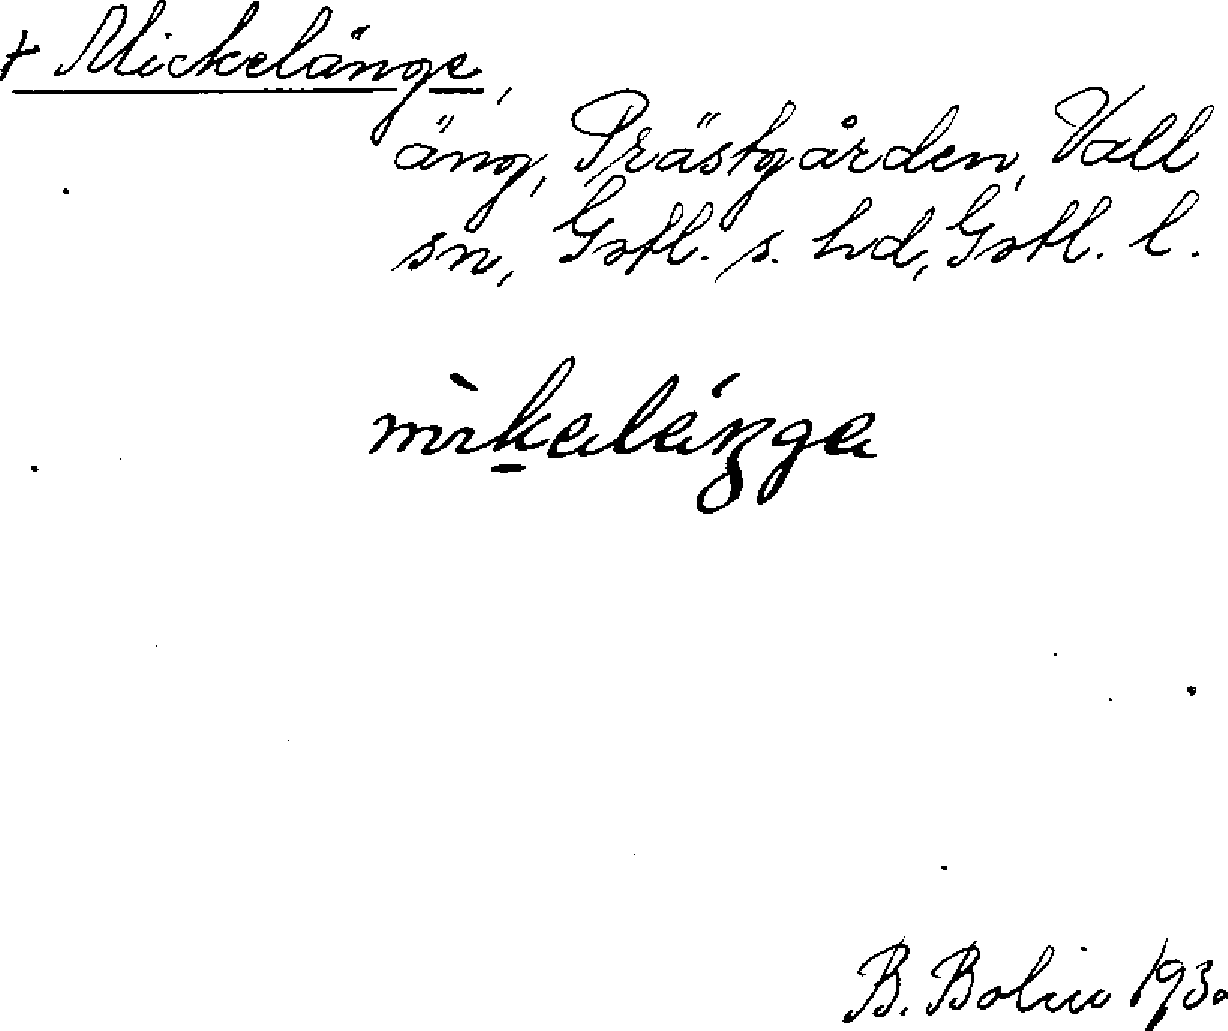 + Mickelänge,
äng, Prästgården, Vall
sn, Gotl. s. hd, Gotl. l.
mìkalánga
B. Bolin 193.